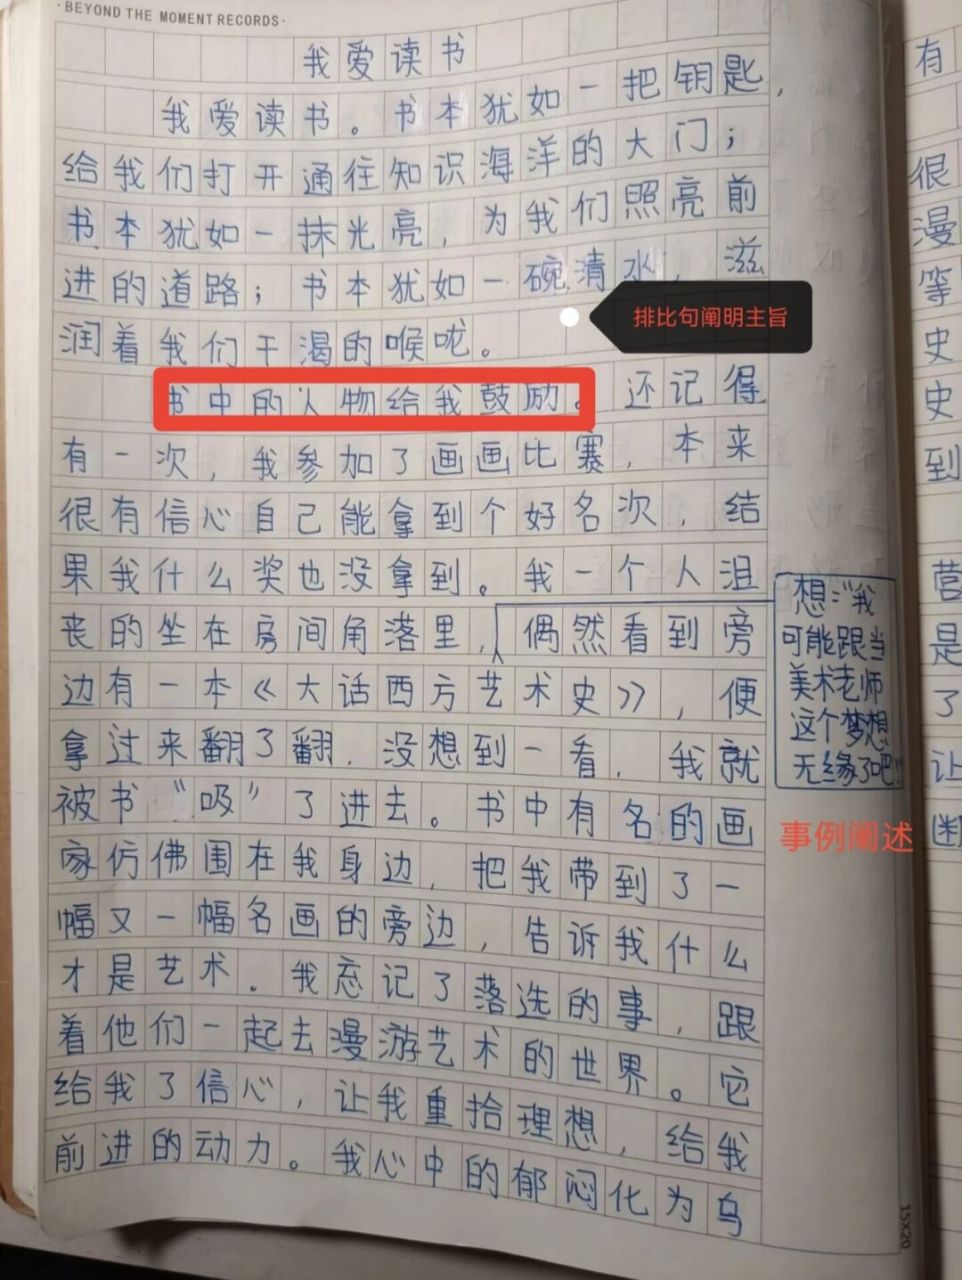 ·BEYOND THE MOMENT RECORDS·
我爱读书
我爱读书。书本犹如一把钥匙，
给我们打开通往知识海洋的大门；
书本犹如一抹光亮，为我们照亮前
进的道路；书本犹如一碗清水，滋
润着我们干渴的喉咙。
排比句阐明主旨
书中的人物给我鼓励。还记得
有一次，我参加了画画比赛，本来
很有信心自己能拿到个好名次，结
果我什么奖也没拿到。我一个人沮
丧的坐在房间角落里，偶然看到旁
边有一本《大话西方艺术史》，便
拿过来翻了翻，没想到一看，我就
被书“吸”了进去。书中有名的画
家仿佛围在我身边，把我带到了一
幅又一幅名画的旁边，告诉我什么
才是艺术。我忘记了落选的事，跟
着他们一起去漫游艺术的世界。它
给我了信心，让我重拾理想，给我
前进的动力。我心中的郁闷化为乌
想：“我
可能跟当
美术老师
这个梦想
无缘了吧！”
事例阐述
15X20
有
很
漫
等
史
史
到
营
是
了
让
困